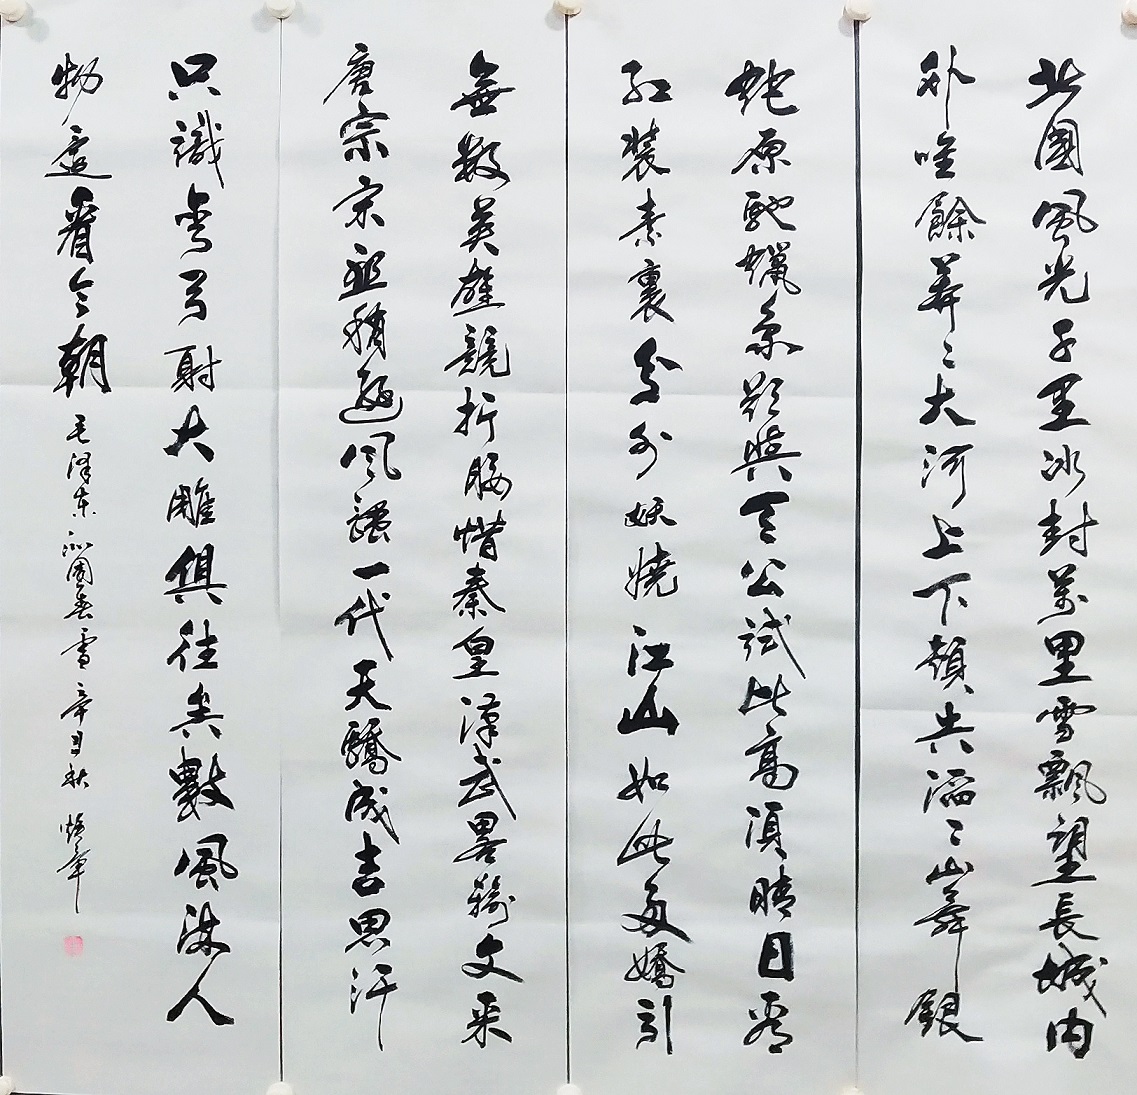 北國風光千里冰封萬里雪飄望長城内
外唯餘莽〻大河上下頓失滔〻山舞銀
蛇原馳蠟象欲與天公試比高須晴日看
紅裝素裹分外妖嬈江山如此多嬌引
無數英雄競折腰惜秦皇漢武畧輸文采
唐宗宋祖稍遜風騷一代天驕成吉思汗
只識彎弓射大雕俱往矣數風流人
物還看今朝 毛澤東 沁園春雪 辛丑秋